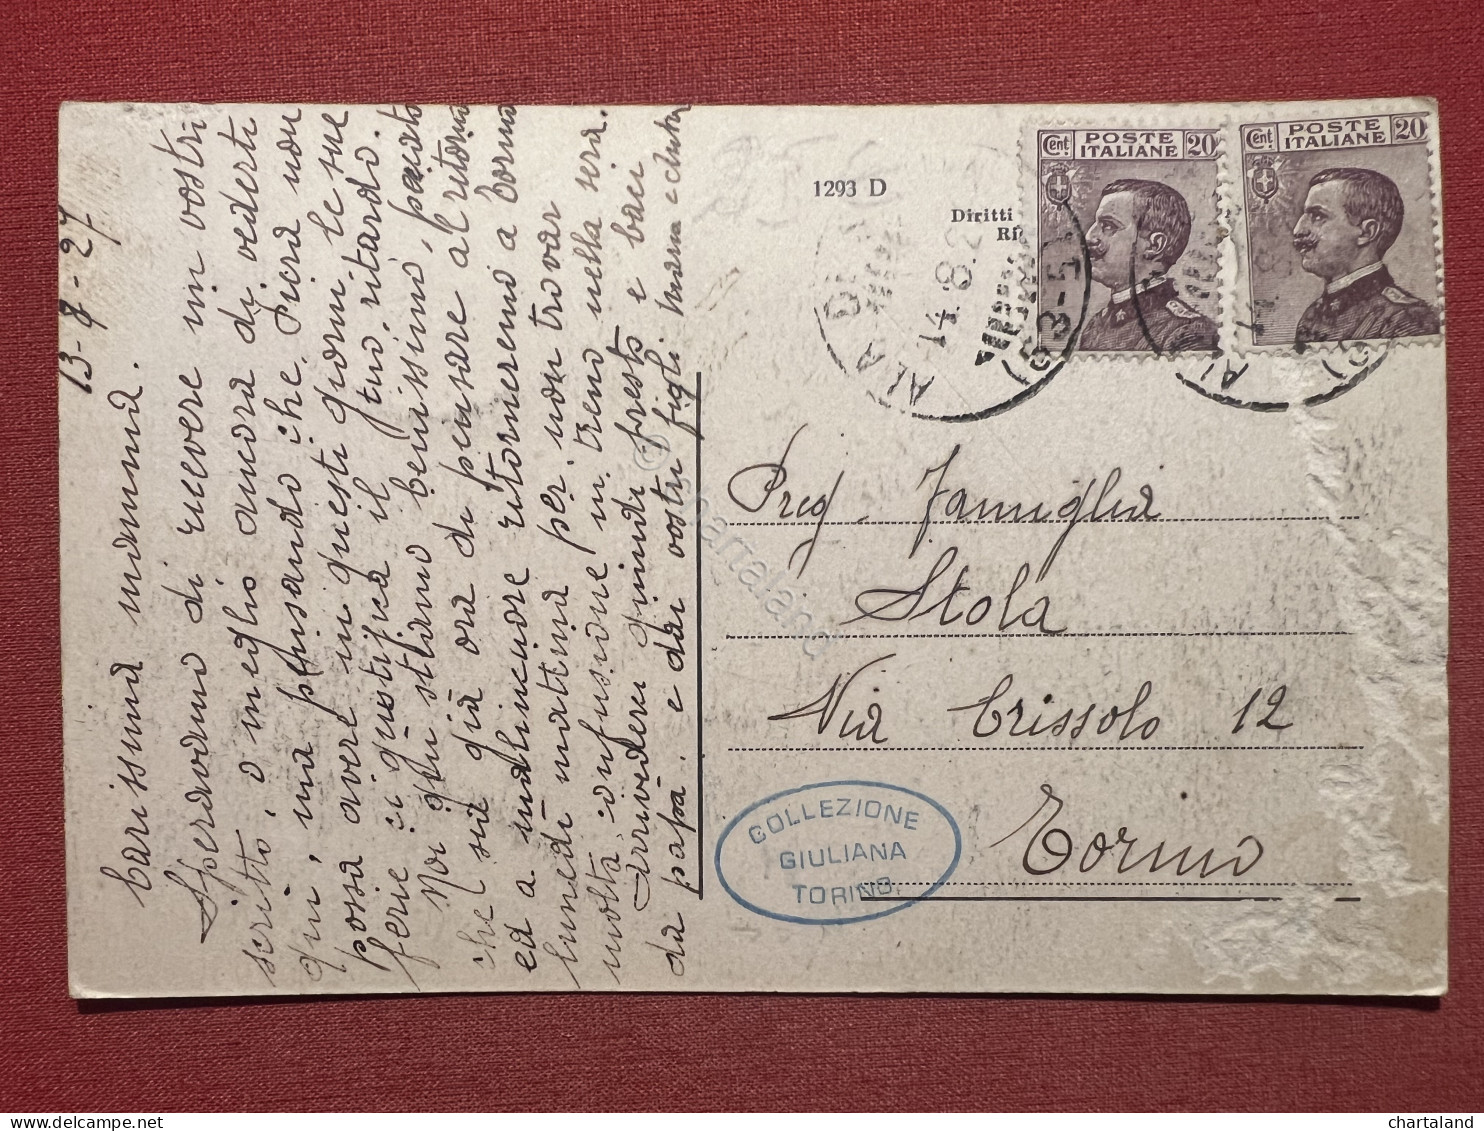 13-8-27
Carissima mamma.
Speravamo di ricevere un vostro
scritto, o meglio ancora di vederti
qui, ma pensando che Piera non
possa avere in questi giorni le sue
ferie ci giustifica il tuo ritardo.
Noi qui stiamo benissimo, peccato
che sia già ora di pensare al ritorno
ed a malincuore ritorneremo a Torino
lunedì mattina per non trovar
molta confusione in treno nella sera.
Arrivederci quindi presto e baci
da papà. e dai vostri figli
1293 D
Diritti
Ris
POSTE
ITALIANE
Cent. 20
POSTE
ITALIANE
Cent. 20
ALA DI
14.8.2
Preg. Famiglia
Stola
Via Crissolo 12
Torino
COLLEZIONE
GIULIANA
TORINO
© cartaland
chartaland